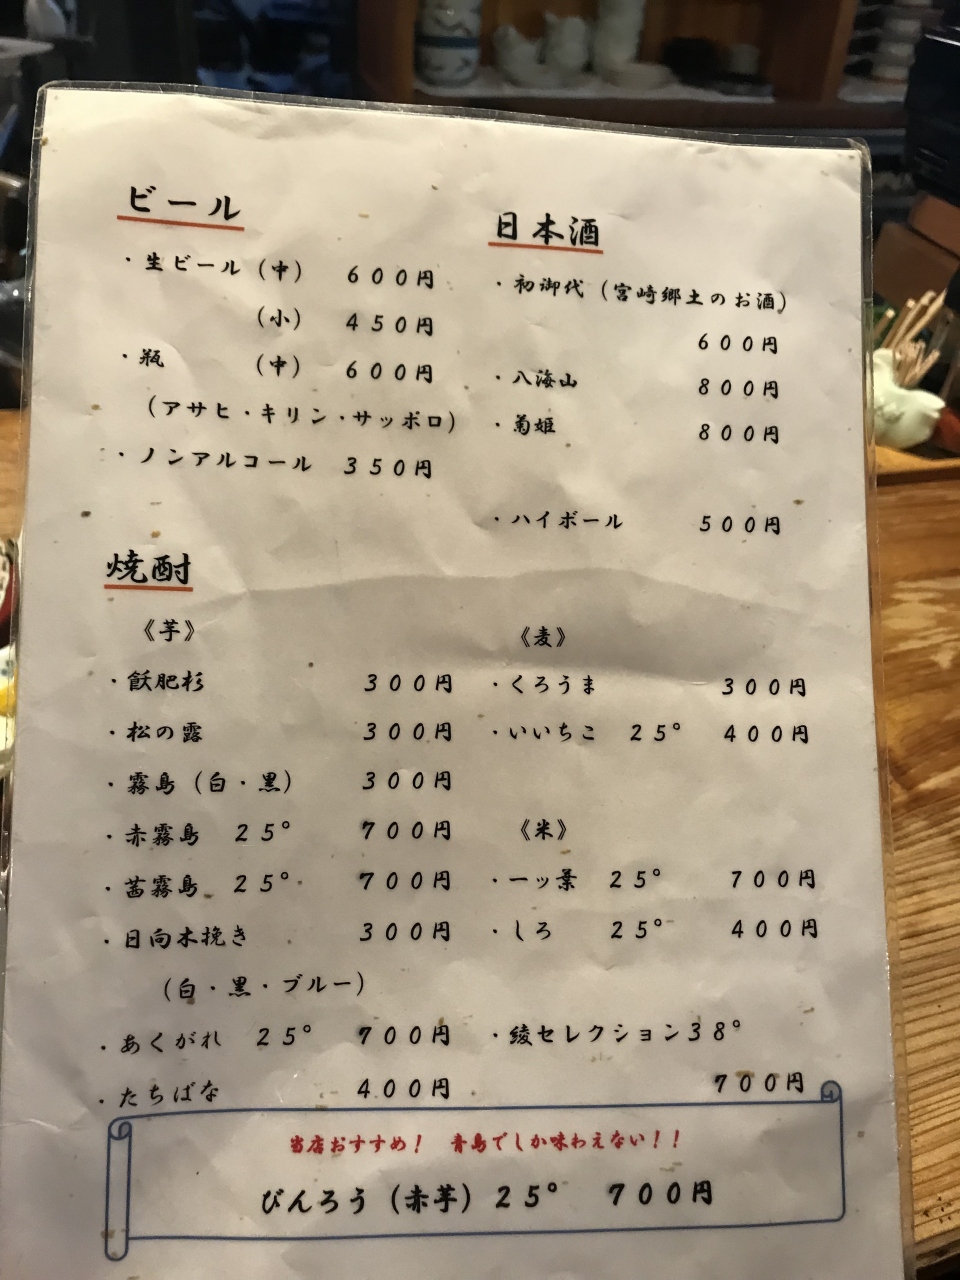 ビール
・生ビール（中） 600円
（小） 450円
・瓶 （中） 600円
（アサヒ・キリン・サッポロ）
・ノンアルコール 350円
日本酒
・初御代（宮崎郷土のお酒）
600円
・八海山 800円
・菊姫 800円
・ハイボール 500円
焼酎
《芋》
・飫肥杉 300円
・松の露 300円
・霧島（白・黒） 300円
・赤霧島 25° 700円
・茜霧島 25° 700円
・日向木挽き 300円
（白・黒・ブルー）
・あくがれ 25° 700円
・たちばな 400円
《麦》
・くろうま 300円
・いいちこ 25° 400円
《米》
・一ッ葉 25° 700円
・しろ 25° 400円
・綾セレクション38°
700円
当店おすすめ！ 青島でしか味わえない！！
びんろう（赤芋）25° 700円